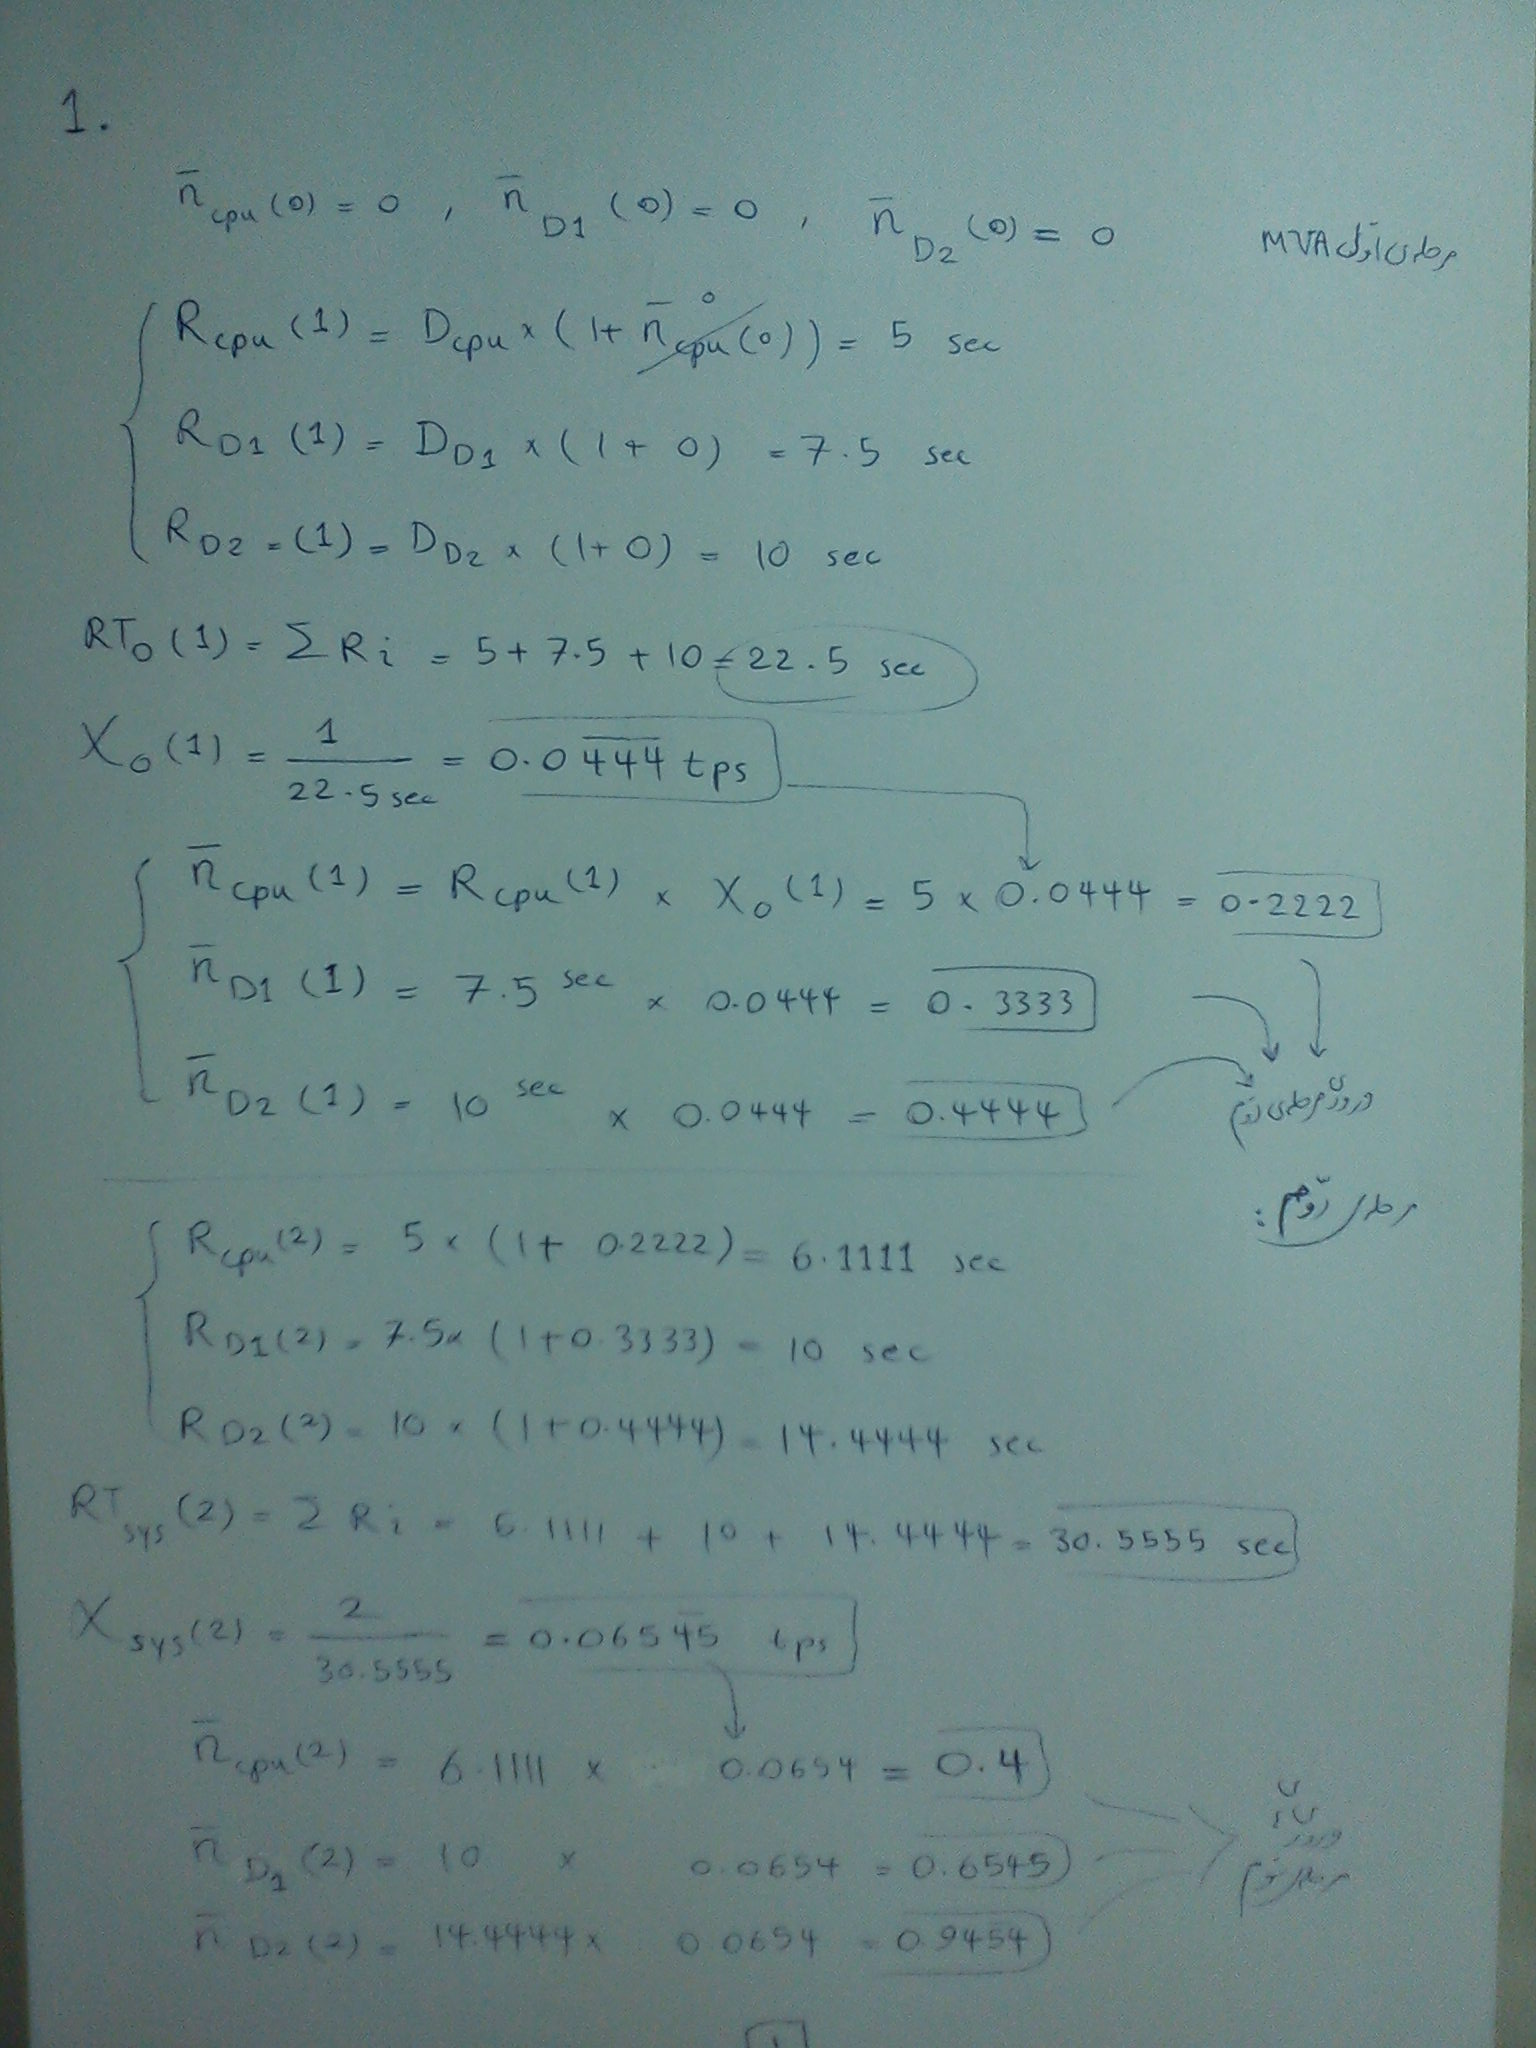 1.
n̅cpu(0) = 0 , n̅D1 (0) = 0 , n̅D2 (0) = 0 مرحله‌ی اوّل MVA
Rcpu (1) = Dcpu × (1+ n̅cpu(0)) = 5 sec
0
RD1 (1) = DD1 × (1+0) = 7.5 sec
RD2 = (1) = DD2 × (1+0) = 10 sec
RTo (1) = Σ Ri = 5+7.5+10 = 22.5 sec
Xo (1) = 1 / 22.5 sec = 0.0444 tps
n̅cpu (1) = Rcpu (1) × Xo (1) = 5 × 0.0444 = 0.2222
n̅D1 (1) = 7.5 sec × 0.0444 = 0.3333
n̅D2 (1) = 10 sec × 0.0444 = 0.4444
ورودی مرحله‌ی دوّم
مرحله‌ی دوّم :
Rcpu(2) = 5 × (1+ 0.2222) = 6.1111 sec
RD1(2) = 7.5× (1+0.3333) = 10 sec
RD2(2) = 10 × (1+0.4444) = 14.4444 sec
RTsys (2) = Σ Ri = 6.1111 + 10 + 14.4444 = 30.5555 sec
Xsys(2) = 2 / 30.5555 = 0.06545 tps
n̅cpu(2) = 6.1111 × 0.0654 = 0.4
n̅D1 (2) = 10 × 0.0654 = 0.6545
n̅D2 (2) = 14.4444 × 0.0654 = 0.9454
ورودی
مرحله‌ی سوّم
1